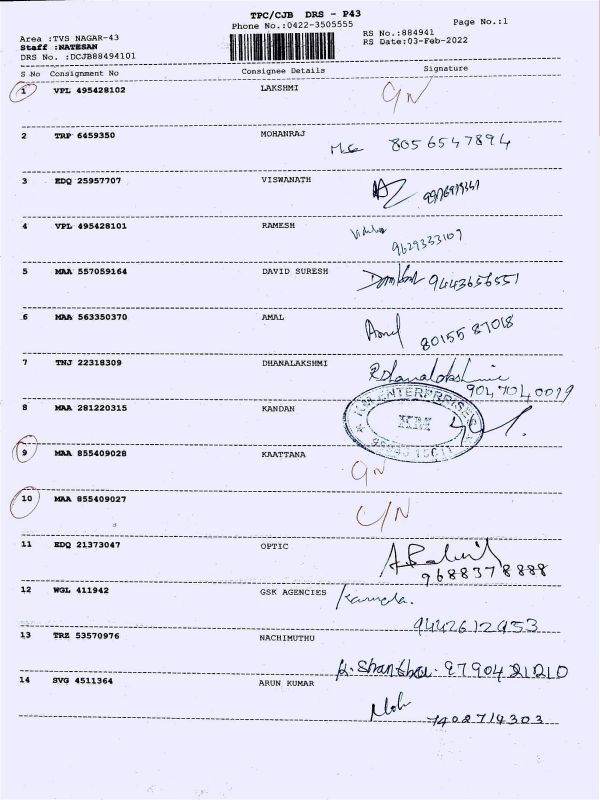 TPC/CJB DRS - P43
Phone No.:0422-3505555
Page No.:1
Area :TVS NAGAR-43
RS No.:884941
Staff :NATESAN
RS Date:03-Feb-2022
DRS No. :DCJB88494101
S No Consignment No Consignee Details Signature
1 VPL 495428102 LAKSHMI
2 TRP 6459350 MOHANRAJ
8056547894
3 EDQ 25957707 VISWANATH
4 VPL 495428101 RAMESH
9629333107
5 MAA 557059164 DAVID SURESH
9443656551
6 MAA 563350370 AMAL
80155 87018
7 TNJ 22318309 DHANALAKSHMI
Rdhanalakshmi
9047040019
8 MAA 281220315 KANDAN
K.M. ENTERPRISES
KM
9 MAA 855409028 KAATTANA
10 MAA 855409027
11 EDQ 21373047 OPTIC
9688378888
12 WGL 411942 GSK AGENCIES
Kamala.
9442612953
13 TRZ 53570976 NACHIMUTHU
9790421210
14 SVG 4511364 ARUN KUMAR
7402714303